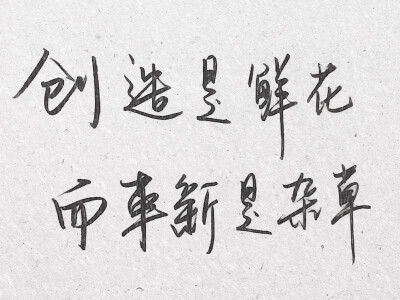 创造是鲜花
而革新是杂草